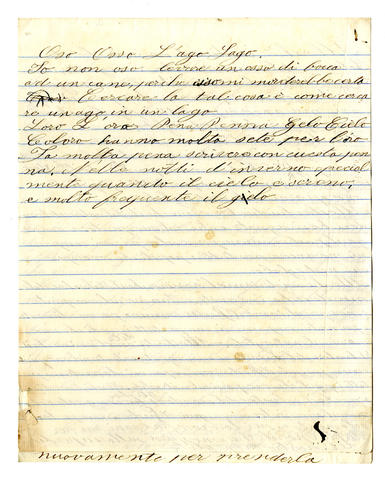 Oso Osso L'ago Lago.
Io non oso levare un osso di bocca
ad un cane, perche mi morderebbe certa
Cercare la tal cosa è come cerca
re un ago in un lago.
Loro L'oro Pena Penna Gelo Cielo
Coloro hanno molta sete per l'oro
Fa molta pena scrivere con cuesta pen
na. Nelle notti d'inverno special
mente quando il cielo e sereno,
e molto frequente il gelo
nuovamente per prenderla